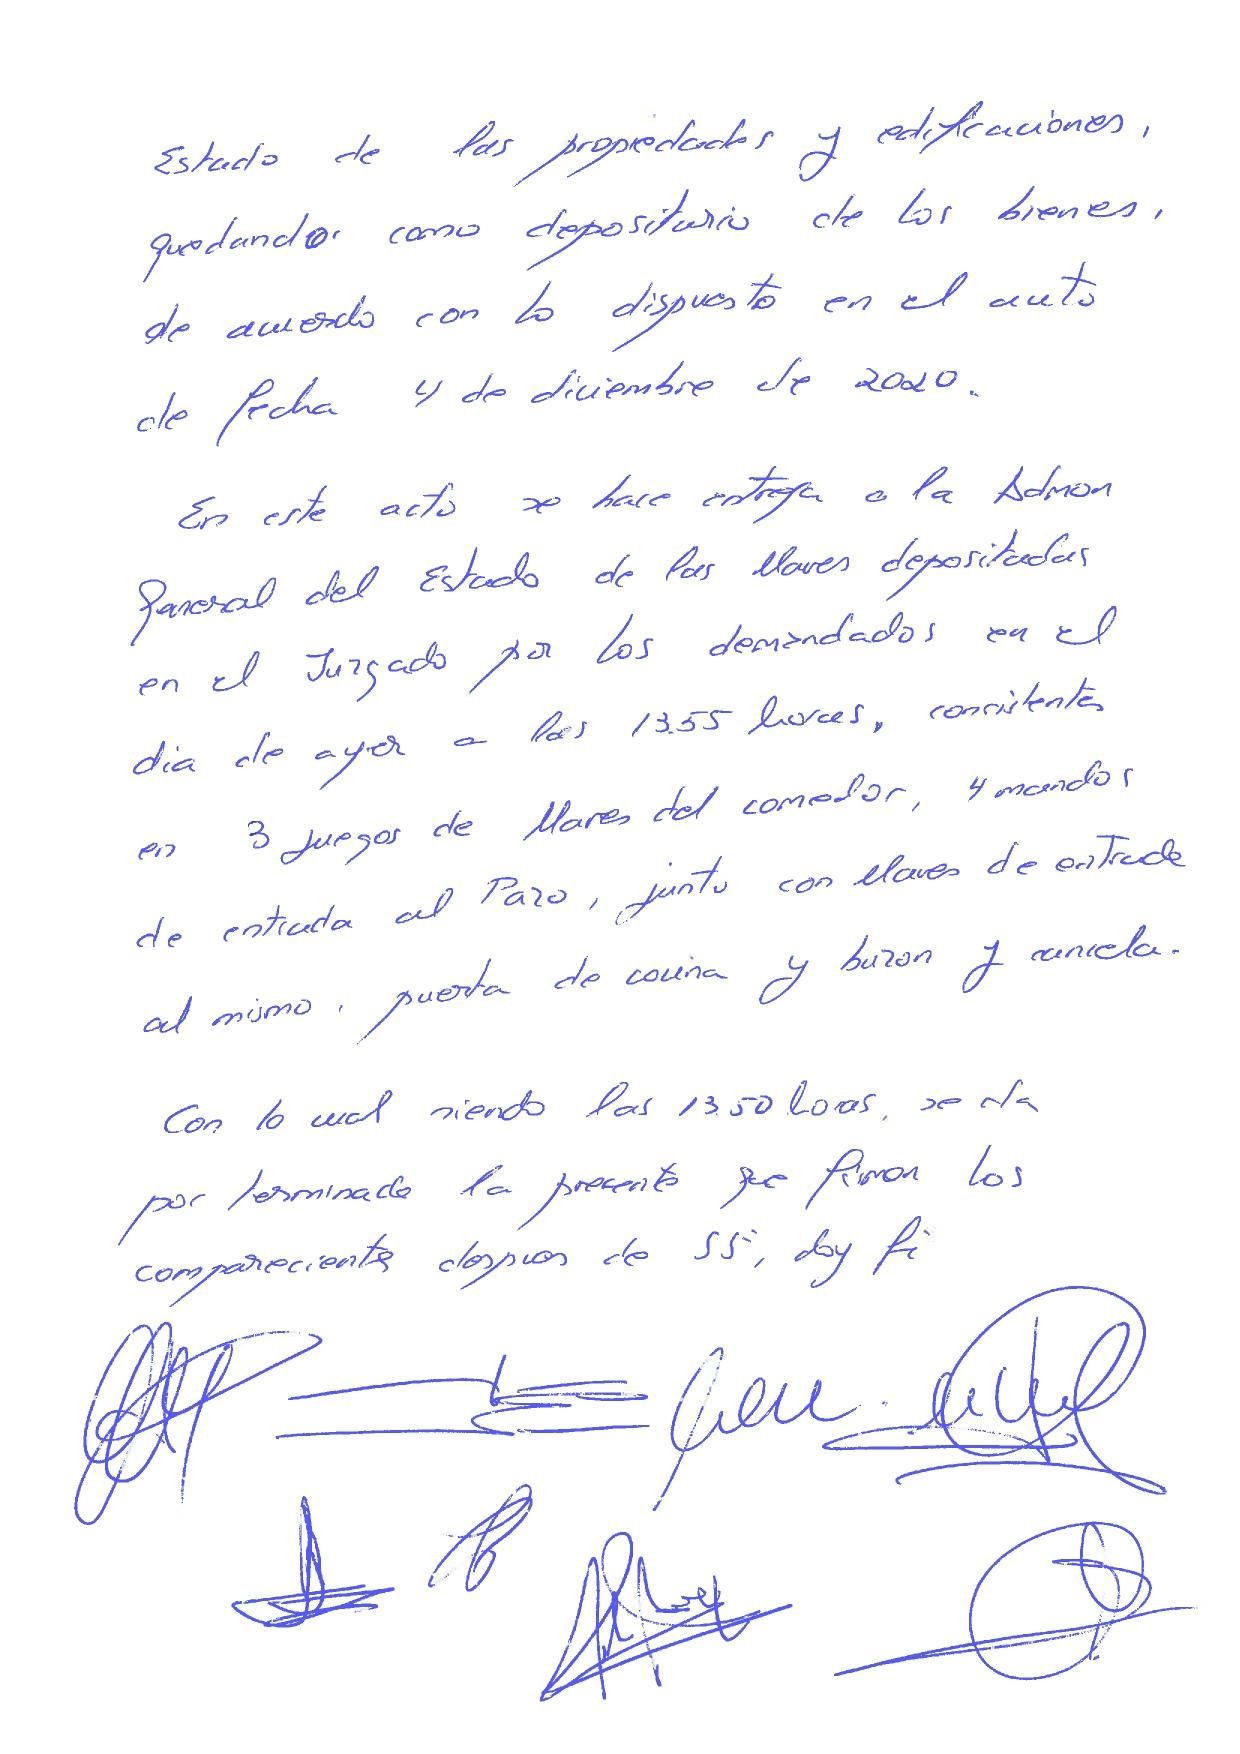 Estado de las propiedades y edificaciones,
quedando como depositario de los bienes,
de acuerdo con lo dispuesto en el auto
de fecha 4 de diciembre de 2020.
En este acto se hace entrega a la Admon
General del Estado de las llaves depositadas
en el Juzgado por los demandados en el
dia de ayer a las 13.55 horas, consistentes
en 3 juegos de llaves del comedor, 4 mandos
de entrada al Pazo, junto con llaves de entrada
al mismo, puerta de cocina y buzon y cancela.
Con lo cual siendo las 13.50 horas, se da
por terminado la presente que firman los
comparecientes despues de SSª, doy fe